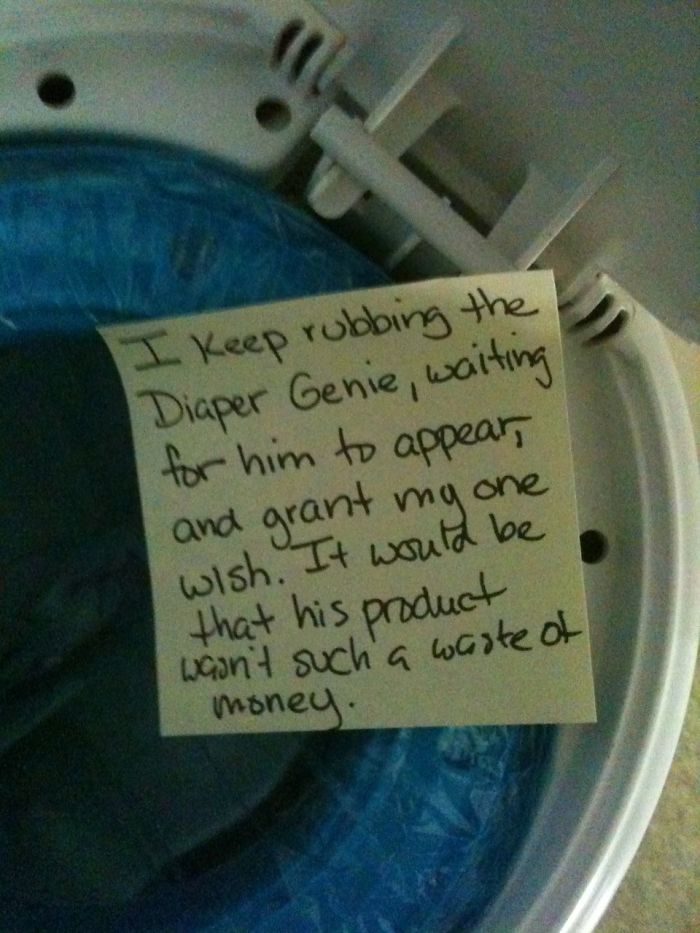 I keep rubbing the
Diaper Genie, waiting
for him to appear,
and grant my one
wish. It would be
that his product
wasn't such a waste of
money.